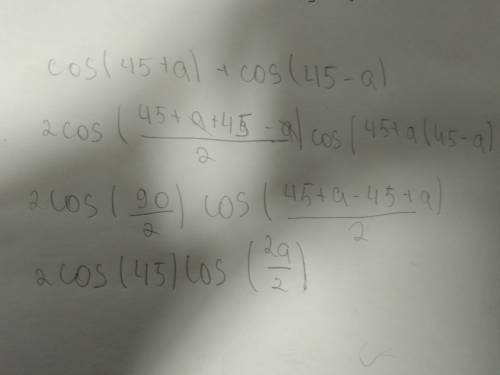 cos(45+a)+cos(45-a)
2cos(45+a+45-a/2)cos(45+a(45-a)
2cos(90/2) cos(45+a-45+a/2)
2cos(45)cos(2a/2)